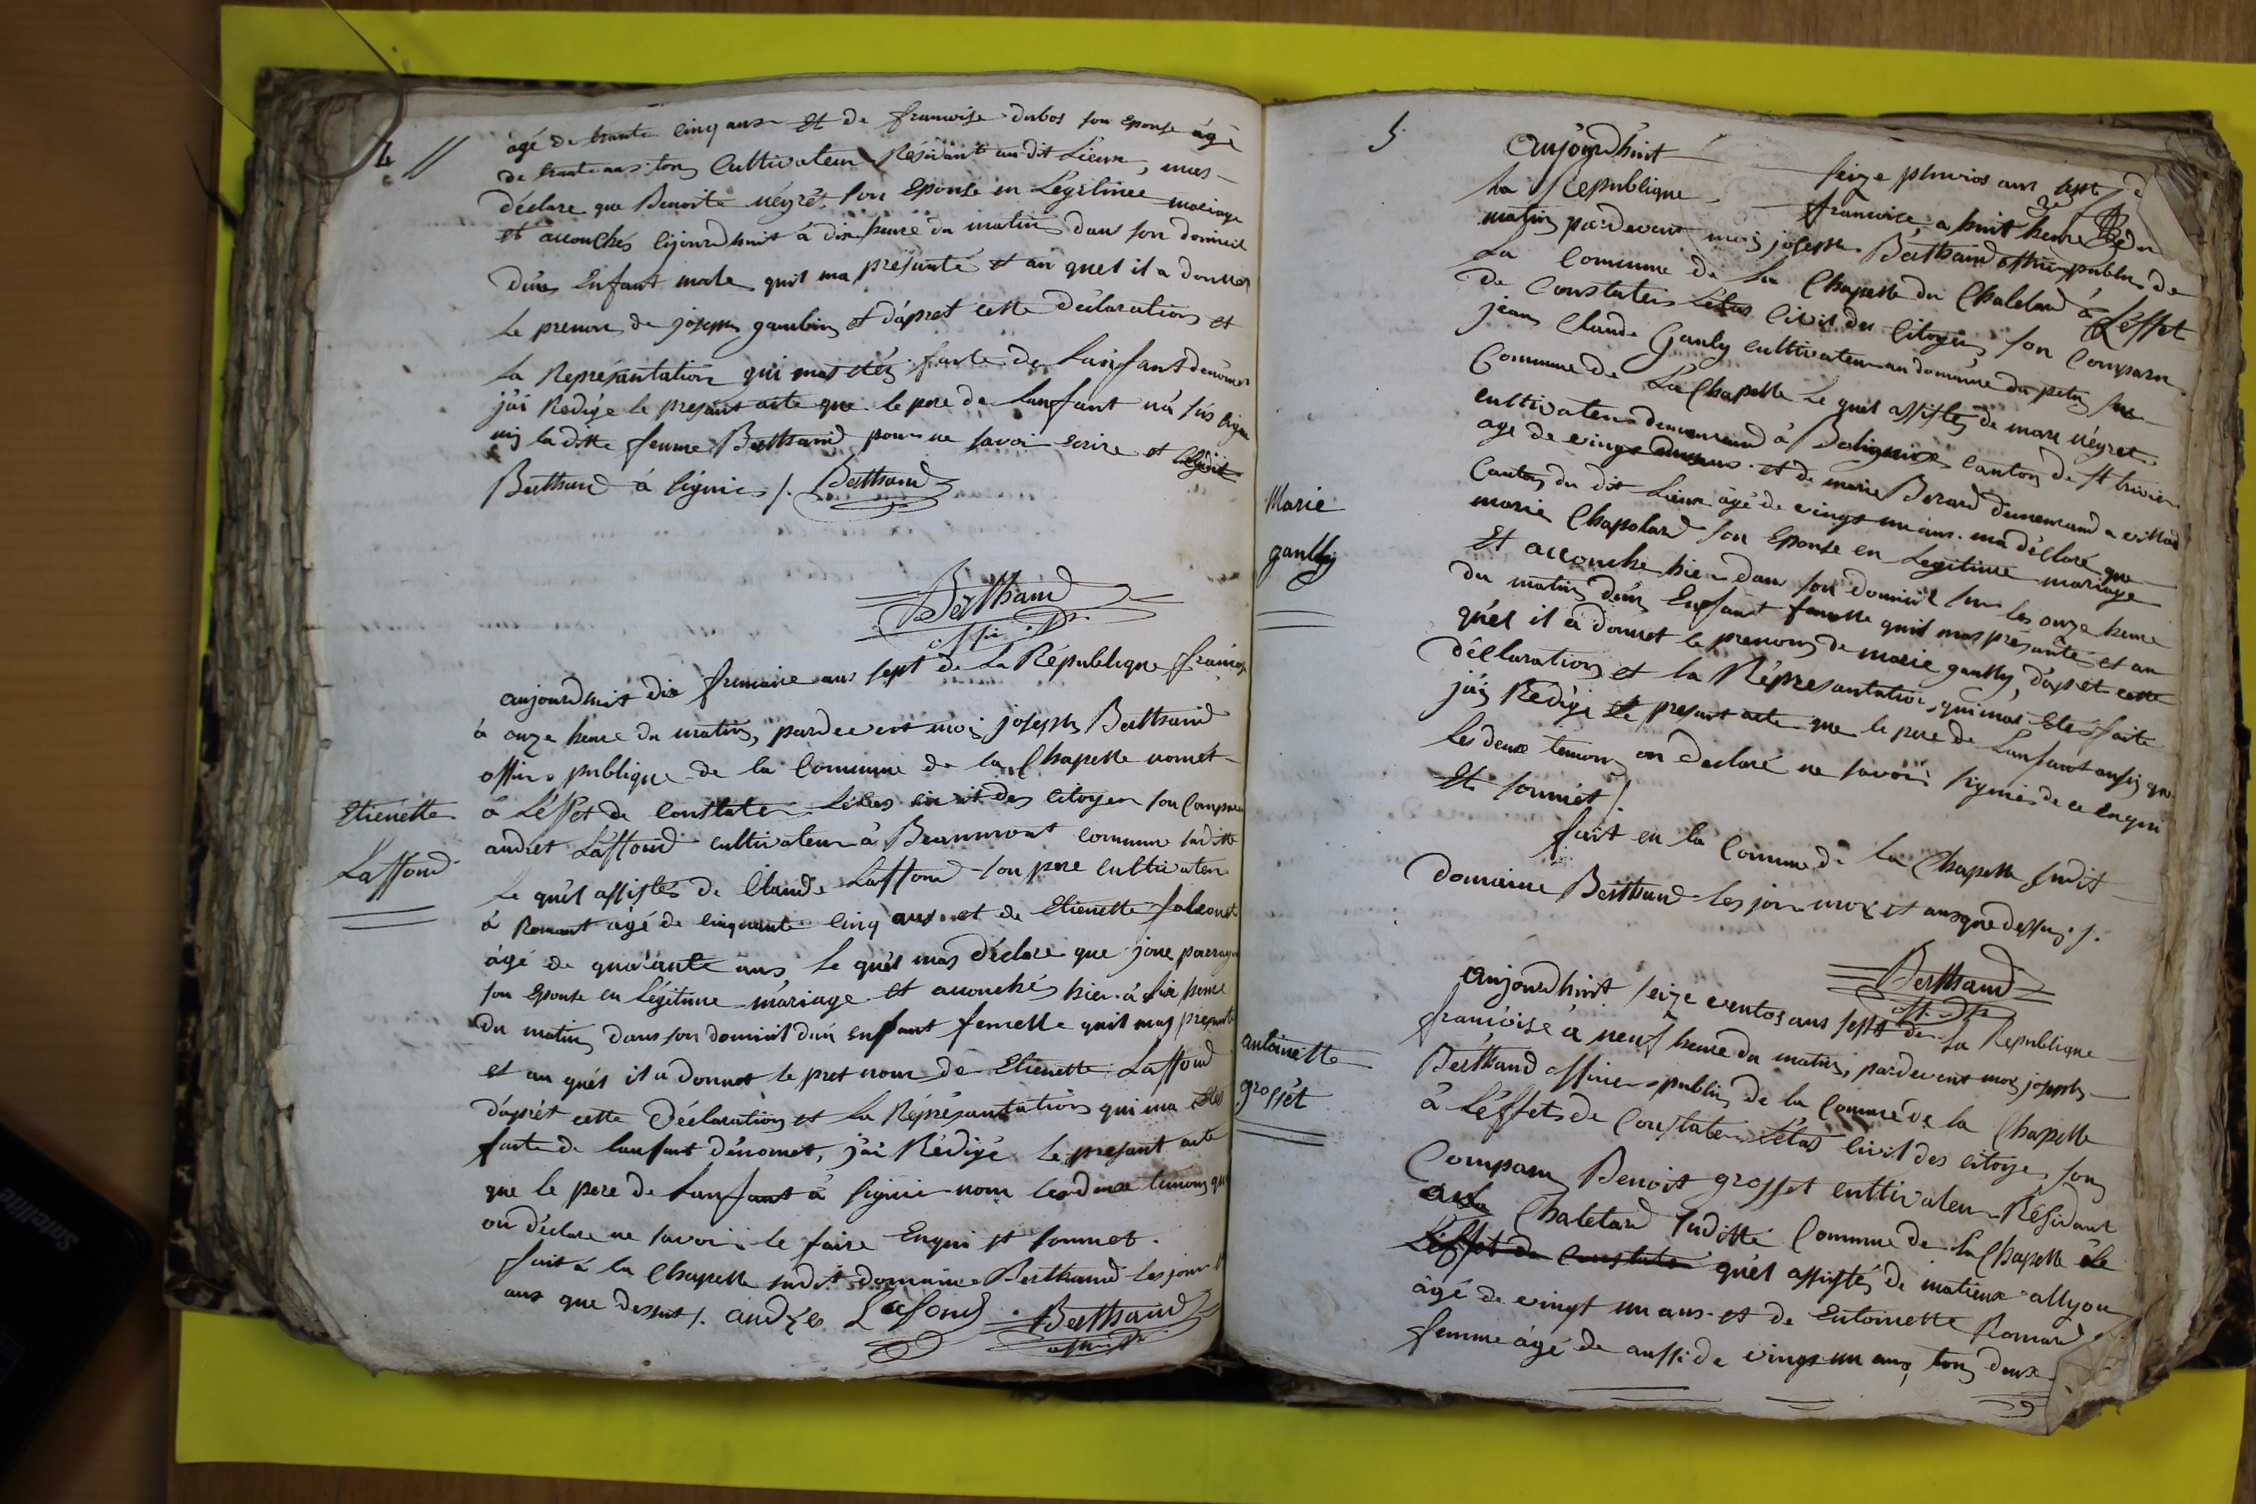 4 //
âgé de trante cinq ans Et de francoise dubos son Eponse âgé
de trante ans tous Cultivateur Résidant audit Lieux, mas
déclare que Benoite négret son Eponse en Légitimee mariage
et acouchés cejourdhuit à dix heure du matin dans son domicil
d'un Enfant male quil ma présanté et au quel il a donner
Le prenom de joseph gambin et d'apret cette déclaration et
La Représantation qui mas étéz faite de Lanfant dénomer
j'ai Rédigé le présant acte que le pere de Lanfant n'a sus signe
nis laditte femme Berthand pour ne savoir Ecrire et
Berthand à signiez /. Berthand
Berthand
offi. p.
aujourdhuit dix frimaire ans sept de La République françoise
à onze heure du matin, pardevent moi joseph Berthand
officier publique de la Commune de la Chapelle nomet
Etienette
à L'effet de Constater Létas civit des citoyen son Comparu
andret Laffond cultivateur à Beaumont commune suditte
Laffond
Le quél assistés de Claude Laffond son pere cultivateur
à Romant agé de cinquante cinq ans et de Etienette falconet
âgé de quarante ans le quél mas déclare que
son Eponse en Légitime mariage et acouchés hier à six heure
du matin dans son domicil d'un enfant femelle quil mas présanté
et au quél il a donnet le pret nom de Etienette Laffond
d'après cette Déclaration et La Réprésantation qui ma étés
faite de lanfant dénomet, j'ai Rédigé le présant acte
que le pere de Lanfant à signié nom les deux temoins qui
on déclare ne savoir le faire Enqui et sommet.
fait à la Chapelle sudit domaine Berthand les jour et
ans que dessus /. andré Lafond Berthand
5
aujourdhuit seize pluvios ans sept de
la République francoise, a huit heure du
matin pardevent moi joseph Berthand officier public de
La Commune de La Chapelle du Chatelard à L'effet
de Constater Létas civit des Citoyen son Comparu
jean Claude Ganly cultivateur au domaine du petit
Commune de La Chapelle Le quel assistés de marc négret
cultivateur demeurand à Baligneux canton de St trivier
age de vingt et de marie Berard demeurand a villar
Canton du dit Lieux âgé de vingt un ans ma déclaré que
Marie
marie Chapolard son Eponse en Legitime mariage
Et accouche hier dans son domicil sur les onze heure
ganlly
du matin d'un Enfant femelle quil mas présanté et au
quél il a donnet le prenom de marie ganlly, d'apret cette
déclaration et la Représantation qui mas Etés faite
j'ai Rédigé Le présant acte que le pere de Lanfant ausi que
les deux temoin on declaré ne savoir signié de ce enqui
Et sommet /.
fait en la Commune de la Chapelle sudit
domaine Berthand les jour moi et ans que dessus /.
Berthand
aujourdhuit seize ventos ans sept de La République
antoinette
francoise à neuf heure du matin, pardevent moi joseph
Berthand officier public de la Commune de la Chapelle
grosset
à L'effet de Constater L'etas civil des citoyen son
Comparu Benoit grosset cultivateur Résidant
au Chatelard suditte Commune de la Chapelle Le
L'effet de Constater quél assistés de matieux allyon
âgé de vingt un ans et de Entoinette Romand
femme âgé de aussi de vingt un ans, tous deux